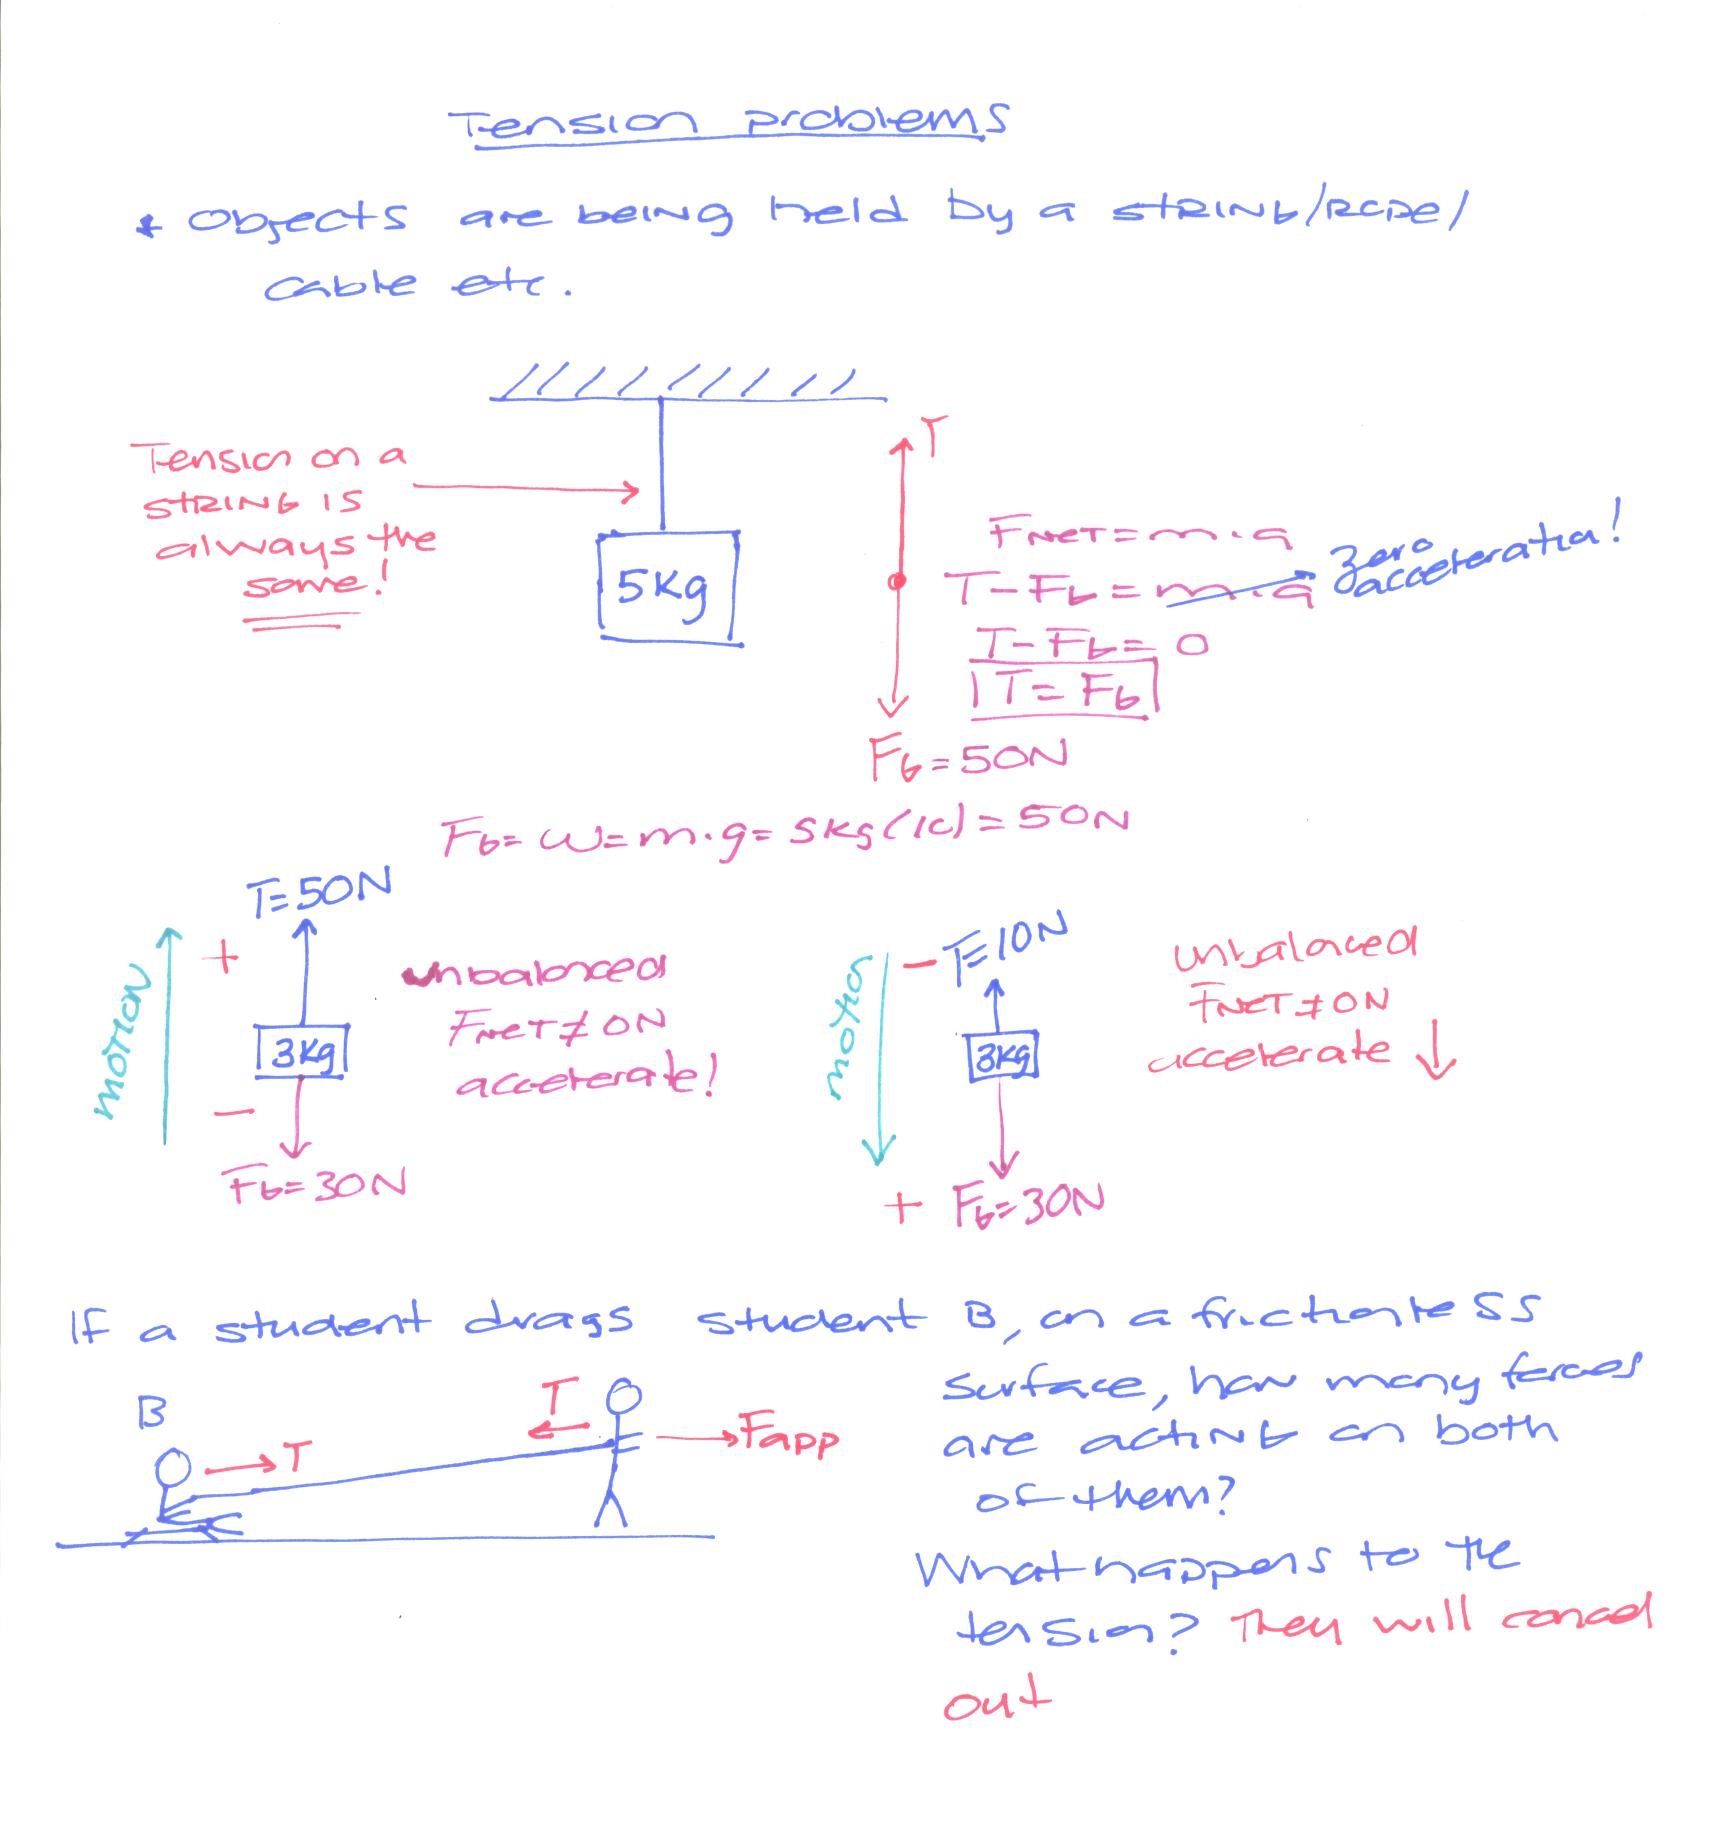 Tension problems
* Objects are being held by a STRING/ROPE/
cable etc.
Tension on a
STRING IS
always the
same!
5Kg
T
FNET = m.a
T - FG = m.a zero acceleration!
T - FG = 0
T = FG
FG = 50N
FG = W = m.g = 5kg(10) = 50N
T = 50N
+
motion
3Kg
-
FG = 30N
unbalanced
FNET ≠ 0N
accelerate!
- T = 10N
motion
3Kg
+ FG = 30N
unbalanced
FNET ≠ 0N
accelerate ↓
IF a student drags student B, on a frictionless
surface, how many forces
are acting on both
of them?
B
T
T
Fapp
What happens to the
tension? They will cancel
out